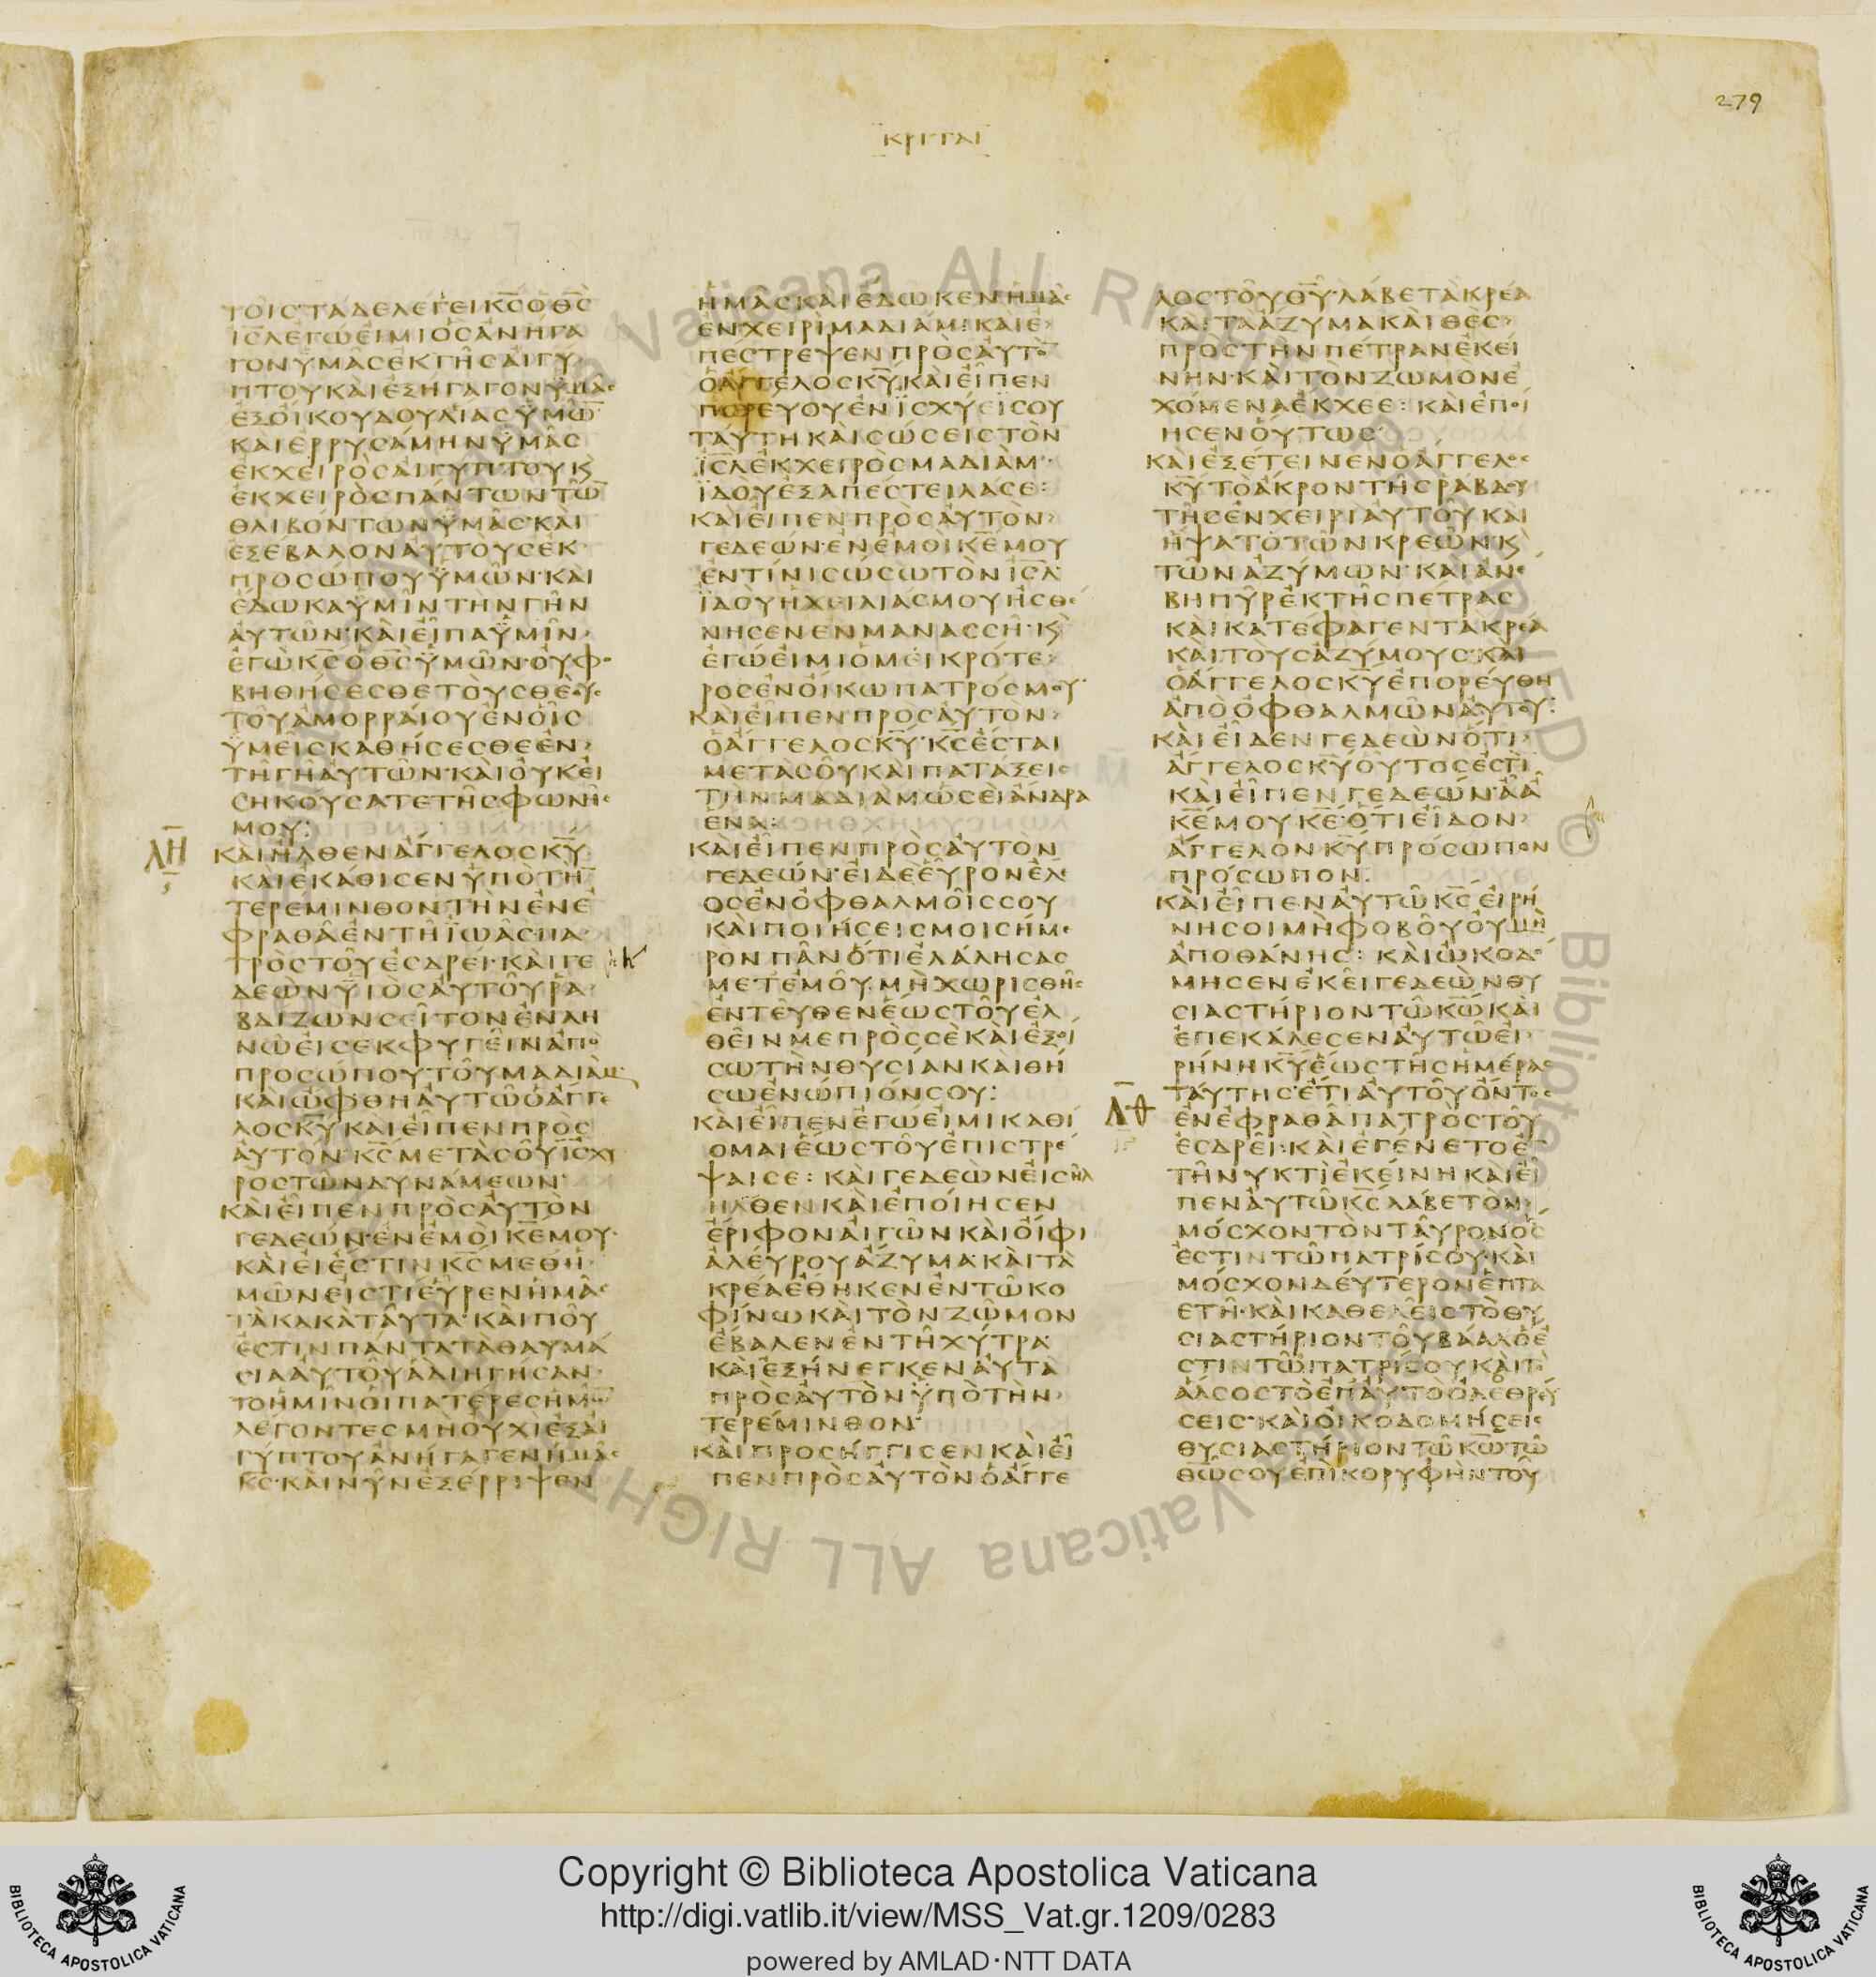 279
ΚΡΙΤΑΙ
ΤΟΙΣΤΑΔΕΛΕΓΕΙΚ̅Σ̅ΟΘ̅Σ̅
Ι̅Σ̅Λ̅ΕΓΩΕΙΜΙΟΣΑΝΗΓΑ
ΓΟΝΫΜΑΣΕΚΓΗΣΑΙΓΥ
ΠΤΟΥΚΑΙΕΞΗΓΑΓΟΝΫΜΑΣ
ΕΞΟΙΚΟΥΔΟΥΛΙΑΣΫΜΩ̅
ΚΑΙΕΡΡΥΣΑΜΗΝΫΜΑΣ
ΕΚΧΕΙΡΟΣΑΙΓΥΠΤΟΥΚ
ΕΚΧΕΙΡΟΣΠΑΝΤΩΝΤΩ̅
ΘΛΙΒΟΝΤΩΝΫΜΑΣ·ΚΑΙ
ΕΞΕΒΑΛΟΝΑΥΤΟΥΣΕΚ
ΠΡΟΣΩΠΟΥΫΜΩΝ·ΚΑΙ
ΕΔΩΚΑΫΜΙΝΤΗΝΓΗΝ
ΑΥΤΩΝ·ΚΑΙΕΙΠΑΫΜΙΝ
ΕΓΩΚ̅Σ̅ΟΘ̅Σ̅ΫΜΩΝ·ΟΥΦΟ
ΒΗΘΗΣΕΣΘΕΤΟΥΣΘΕΟΥΣ
ΤΟΥΑΜΟΡΡΑΙΟΥΕΝΟΙΣ
ΫΜΕΙΣΚΑΘΗΣΕΣΘΕΕΝ
ΤΗΓΗΑΥΤΩΝ·ΚΑΙΟΥΚΕΙ
ΣΗΚΟΥΣΑΤΕΤΗΣΦΩΝΗΣ
ΜΟΥ:
Λ̅Η̅
ΚΑΙΗΛΘΕΝΑΓΓΕΛΟΣΚ̅Υ̅
ΚΑΙΕΚΑΘΙΣΕΝΫΠΟΤΗ̅
ΤΕΡΕΜΙΝΘΟΝΤΗΝΕΝΕ
ΦΡΑΘΑΕΝΤΗΪΩΑΣΠΑ
ΤΡΟΣΤΟΥΕΣΔΡΕΙ·ΚΑΙΓΕ
ΔΕΩΝΫΙΟΣΑΥΤΟΥΡΑ
ΒΔΙΖΩΝΣΕΙΤΟΝΕΝΛΗ
ΝΩΕΙΣΕΚΦΥΓΕΙΝΑΠΟ
ΠΡΟΣΩΠΟΥΤΟΥΜΑΔΙΑΜ
ΚΑΙΩΦΘΗΑΥΤΩΟΑΓΓΕ
ΛΟΣΚ̅Υ̅ΚΑΙΕΙΠΕΝΠΡΟΣ
ΑΥΤΟΝ·Κ̅Σ̅ΜΕΤΑΣΟΥΪΣΧΥ
ΡΟΣΤΩΝΔΥΝΑΜΕΩΝ·
ΚΑΙΕΙΠΕΝΠΡΟΣΑΥΤΟΝ
ΓΕΔΕΩΝ·ΕΝΕΜΟΙΚ̅Ε̅ΜΟΥ·
ΚΑΙΕΙΕΣΤΙΝΚ̅Σ̅ΜΕΘΗ
ΜΩΝΕΙΣΤΙΕΥΡΕΝΗΜΑΣ
ΤΑΚΑΚΑΤΑΥΤΑ·ΚΑΙΠΟΥ
ΕΣΤΙΝΠΑΝΤΑΤΑΘΑΥΜΑ
ΣΙΑΑΥΤΟΥΑΔΙΗΓΗΣΑΝ
ΤΟΗΜΙΝΟΙΠΑΤΕΡΕΣΗΜΩ̅
ΛΕΓΟΝΤΕΣΜΗΟΥΧΙΕΞΑΙ
ΓΥΠΤΟΥΑΝΗΓΑΓΕΝΗΜΑΣ
Κ̅Σ̅·ΚΑΙΝΥΝΕΞΕΡΡΙΨΕΝ
ΗΜΑΣΚΑΙΕΔΩΚΕΝΗΜΑΣ
ΕΝΧΕΙΡΙΜΑΔΙΑΜ:ΚΑΙΕ
ΠΕΣΤΡΕΨΕΝΠΡΟΣΑΥΤΟ̅
ΟΑΓΓΕΛΟΣΚ̅Υ̅ΚΑΙΕΙΠΕΝ
ΠΟΡΕΥΟΥΕΝΪΣΧΥΕΙΣΟΥ
ΤΑΥΤΗΚΑΙΣΩΣΕΙΣΤΟΝ
Ϊ̅Σ̅Λ̅ΕΚΧΕΙΡΟΣΜΑΔΙΑΜ·
ΪΔΟΥΕΞΑΠΕΣΤΕΙΛΑΣΕ:
ΚΑΙΕΙΠΕΝΠΡΟΣΑΥΤΟΝ
ΓΕΔΕΩΝ·ΕΝΕΜΟΙΚ̅Ε̅ΜΟΥ
ΕΝΤΙΝΙΣΩΣΩΤΟΝΙ̅Σ̅Λ̅
ΪΔΟΥΗΧΕΙΛΙΑΣΜΟΥΗΣΘΕ
ΝΗΣΕΝΕΝΜΑΝΑΣΣΗ·Κ
ΕΓΩΕΙΜΙΟΜΕΙΚΡΟΤΕ
ΡΟΣΕΝΟΙΚΩΠΑΤΡΟΣΜΟΥ·
ΚΑΙΕΙΠΕΝΠΡΟΣΑΥΤΟΝ
ΟΑΓΓΕΛΟΣΚ̅Υ̅·Κ̅Σ̅ΕΣΤΑΙ
ΜΕΤΑΣΟΥΚΑΙΠΑΤΑΞΕΙΣ
ΤΗΝΜΑΔΙΑΜΩΣΕΙΑΝΔΡΑ
ΕΝΑ:
ΚΑΙΕΙΠΕΝΠΡΟΣΑΥΤΟΝ
ΓΕΔΕΩΝ·ΕΙΔΕΕΥΡΟΝΕΛΕ
ΟΣΕΝΟΦΘΑΛΜΟΙΣΣΟΥ
ΚΑΙΠΟΙΗΣΕΙΣΜΟΙΣΗΜΕ
ΡΟΝΠΑΝΟΤΙΕΛΑΛΗΣΑΣ
ΜΕΤΕΜΟΥ·ΜΗΧΩΡΙΣΘΗΣ
ΕΝΤΕΥΘΕΝΕΩΣΤΟΥΕΛ
ΘΕΙΝΜΕΠΡΟΣΣΕΚΑΙΕΞΟΙ
ΣΩΤΗΝΘΥΣΙΑΝΚΑΙΘΗ
ΣΩΕΝΩΠΙΟΝΣΟΥ:
ΚΑΙΕΙΠΕΝΕΓΩΕΙΜΙΚΑΘΙ
ΟΜΑΙΕΩΣΤΟΥΕΠΙΣΤΡΕ
ΨΑΙΣΕ:ΚΑΙΓΕΔΕΩΝΕΙΣΗΛ
ΗΛΘΕΝΚΑΙΕΠΟΙΗΣΕΝ
ΕΡΙΦΟΝΑΙΓΩΝΚΑΙΟΙΦΙ
ΑΛΕΥΡΟΥΑΖΥΜΑ·ΚΑΙΤΑ
ΚΡΕΑΕΘΗΚΕΝΕΝΤΩΚΟ
ΦΙΝΩΚΑΙΤΟΝΖΩΜΟΝ
ΕΒΑΛΕΝΕΝΤΗΧΥΤΡΑ
ΚΑΙΕΞΗΝΕΓΚΕΝΑΥΤΑ
ΠΡΟΣΑΥΤΟΝΫΠΟΤΗΝ
ΤΕΡΕΜΙΝΘΟΝ·
ΚΑΙΠΡΟΣΗΓΓΙΣΕΝΚΑΙΕΙ
ΠΕΝΠΡΟΣΑΥΤΟΝΟΑΓΓΕ
ΛΟΣΤΟΥΘ̅Υ̅·ΛΑΒΕΤΑΚΡΕΑ
ΚΑΙΤΑΑΖΥΜΑΚΑΙΘΕΣ
ΠΡΟΣΤΗΝΠΕΤΡΑΝΕΚΕΙ
ΝΗΝ·ΚΑΙΤΟΝΖΩΜΟΝΕ
ΧΟΜΕΝΑΕΚΧΕΕ:ΚΑΙΕΠΟΙ
ΗΣΕΝΟΥΤΩΣ·
ΚΑΙΕΞΕΤΕΙΝΕΝΟΑΓΓΕΛΟΣ
Κ̅Υ̅ΤΟΑΚΡΟΝΤΗΣΡΑΒΔΟΥ
ΤΗΣΕΝΧΕΙΡΙΑΥΤΟΥΚΑΙ
ΗΨΑΤΟΤΩΝΚΡΕΩΝ·Κ
ΤΩΝΑΖΥΜΩΝ·ΚΑΙΑΝΕ
ΒΗΠΥΡΕΚΤΗΣΠΕΤΡΑΣ
ΚΑΙΚΑΤΕΦΑΓΕΝΤΑΚΡΕΑ
ΚΑΙΤΟΥΣΑΖΥΜΟΥΣ·ΚΑΙ
ΟΑΓΓΕΛΟΣΚ̅Υ̅ΕΠΟΡΕΥΘΗ
ΑΠΟΟΦΘΑΛΜΩΝΑΥΤΟΥ:
ΚΑΙΕΙΔΕΝΓΕΔΕΩΝΟΤΙ
ΑΓΓΕΛΟΣΚ̅Υ̅ΟΥΤΟΣΕΣΤΙ
ΚΑΙΕΙΠΕΝΓΕΔΕΩΝ·ΑΑ
Κ̅Ε̅ΜΟΥΚ̅Ε̅·ΟΤΙΕΙΔΟΝ
ΑΓΓΕΛΟΝΚ̅Υ̅ΠΡΟΣΩΠΟΝ
ΠΡΟΣΩΠΟΝ:
ΚΑΙΕΙΠΕΝΑΥΤΩΚ̅Σ̅ΕΙΡΗ
ΝΗΣΟΙΜΗΦΟΒΟΥΟΥΜΗ
ΑΠΟΘΑΝΗΣ:ΚΑΙΩΚΟΔΟ
ΜΗΣΕΝΕΚΕΙΓΕΔΕΩΝΘΥ
ΣΙΑΣΤΗΡΙΟΝΤΩΚ̅Ω̅ΚΑΙ
ΕΠΕΚΑΛΕΣΕΝΑΥΤΩΕΙ
ΡΗΝΗΚ̅Υ̅ΕΩΣΤΗΣΗΜΕΡΑΣ
ΤΑΥΤΗΣ·ΕΤΙΑΥΤΟΥΟΝΤΟΣ
Λ̅Θ̅
ΕΝΕΦΡΑΘΑΠΑΤΡΟΣΤΟΥ
ΕΣΔΡΕΙ:ΚΑΙΕΓΕΝΕΤΟΕΝ
ΤΗΝΥΚΤΙΕΚΕΙΝΗΚΑΙΕΙ
ΠΕΝΑΥΤΩΚ̅Σ̅ΛΑΒΕΤΟΝ
ΜΟΣΧΟΝΤΟΝΤΑΥΡΟΝΟΣ
ΕΣΤΙΝΤΩΠΑΤΡΙΣΟΥ·ΚΑΙ
ΜΟΣΧΟΝΔΕΥΤΕΡΟΝΕΠΤΑ
ΕΤΗ·ΚΑΙΚΑΘΕΛΕΙΣΤΟΘΥ
ΣΙΑΣΤΗΡΙΟΝΤΟΥΒΑΑΛΟΕ
ΣΤΙΝΤΩΠΑΤΡΙΣΟΥΚΑΙΤΟ
ΑΛΣΟΣΤΟΕΠΑΥΤΟΟΛΕΘΡΕΥ
ΣΕΙΣ·ΚΑΙΟΙΚΟΔΟΜΗΣΕΙΣ
ΘΥΣΙΑΣΤΗΡΙΟΝΤΩΚ̅Ω̅ΤΩ
ΘΩΣΟΥΕΠΙΚΟΡΥΦΗΝΤΟΥ
Copyright © Biblioteca Apostolica Vaticana
http://digi.vatlib.it/view/MSS_Vat.gr.1209/0283
powered by AMLAD·NTT DATA
BIBLIOTECA APOSTOLICA VATICANA
BIBLIOTECA APOSTOLICA VATICANA